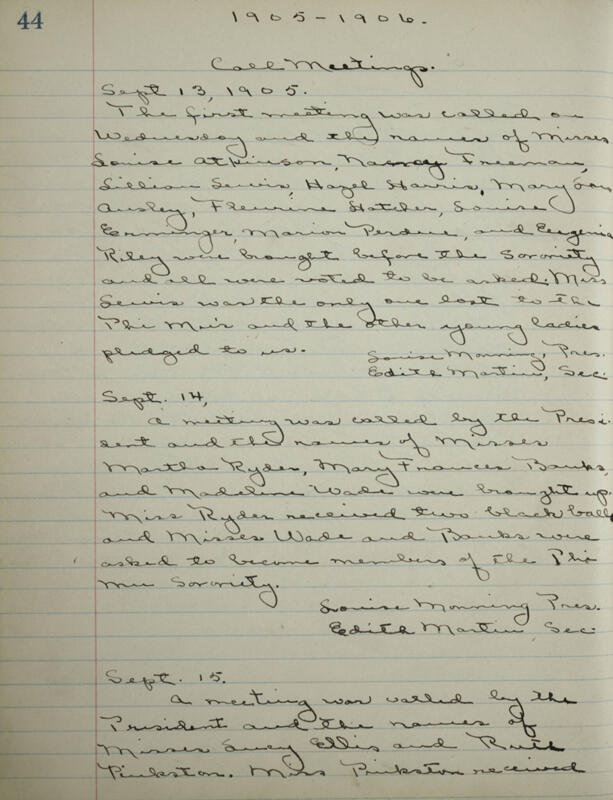 44
1905-1906.
Call Meetings.
Sept 13, 1905.
The first meeting was called on
Wednesday and the names of Misses
Louise Atkinson, Nancy Freeman,
Lillian Lewis, Hazel Harris, Mary Lou
Ansley, Fleurine Hatcher, Louise
Erminger, Marion Perdue, and Eugenia
Riley were brought before the Sorority
and all were voted to be asked. Miss
Lewis was the only one lost to the
Phi Mu's and the other young ladies
pledged to us.
Louise Monning, Pres.
Edith Martin, Sec.
Sept. 14,
A meeting was called by the Presi-
dent and the names of Misses
Martha Ryder, Mary Frances Banks,
and Madeline Wade were brought up.
Miss Ryder received two black balls
and Misses Wade and Banks were
asked to become members of the Phi
Mu Sorority.
Louise Monning Pres.
Edith Martin Sec.
Sept. 15.
A meeting was called by the
President and the names of
Misses Lucy Ellis and Ruth
Pinkston. Miss Pinkston received